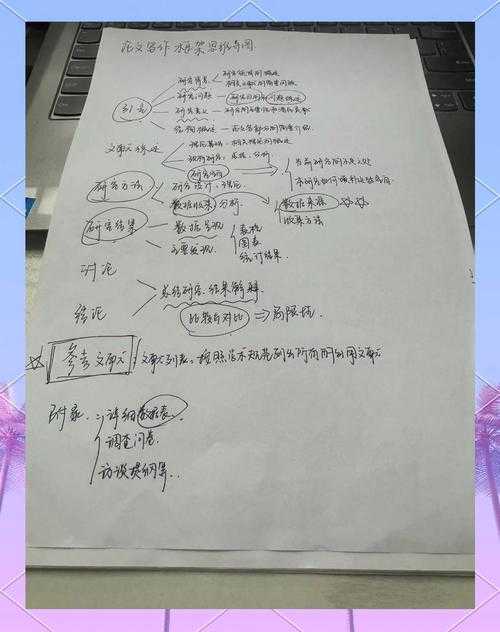 论文写作 框架思维导图
引言
研究背景 — 研究领域的概述
相关文献的简要回顾
研究问题 — 研究目的和问题陈述
研究意义 — 研究的重要性和潜在贡献
结构概述 — 论文各部分的简要介绍
文献综述
理论基础:相关理论的概述
研究空白
当前研究的不足之处
本研究如何填补这些空白
研究方法
研究设计:
数据收集 分析
数据来源
收集方法
研究结果
数据呈现
主要发现
表格
图表
统计结果
讨论
结论
总结研究、结果解释
比较与对比 ⇒ 局限性
☆ 参考文献 文献列表:按照学术规范列出所有引用文献
附录
详细数据表
调查问卷
访谈提纲等..